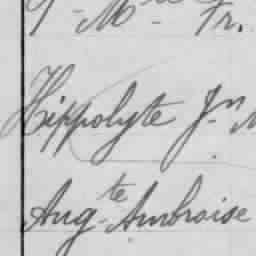 J-Mie Fr.
Hippolyte Jn M
Aug-te Ambroise